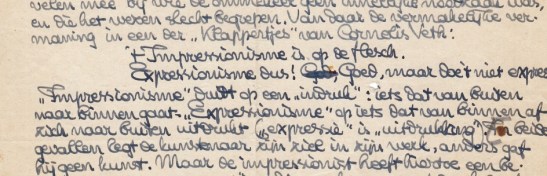 velen mee bij wie de ommekeer geen innerlijke noodzaak was,
en die het woord slecht begrepen. Vandaar de vermakelijke ver-
maning in een der „Klappertjes" van Cornelis Veth:
't Impressionisme is op de flesch.
Expressionisme dus! Goed, maar doe't niet expres
„Impressionisme" duidt op een „indruk": iets dat van buiten
naar binnen gaat. „Expressionisme" op iets dat van binnen af
zich naar buiten uitdrukt („expressie" is „uitdrukking"). In beide
gevallen legt de kunstenaar zijn ziel in zijn werk, anders gaf
hij geen kunst. Maar de impressionist heeft een be-